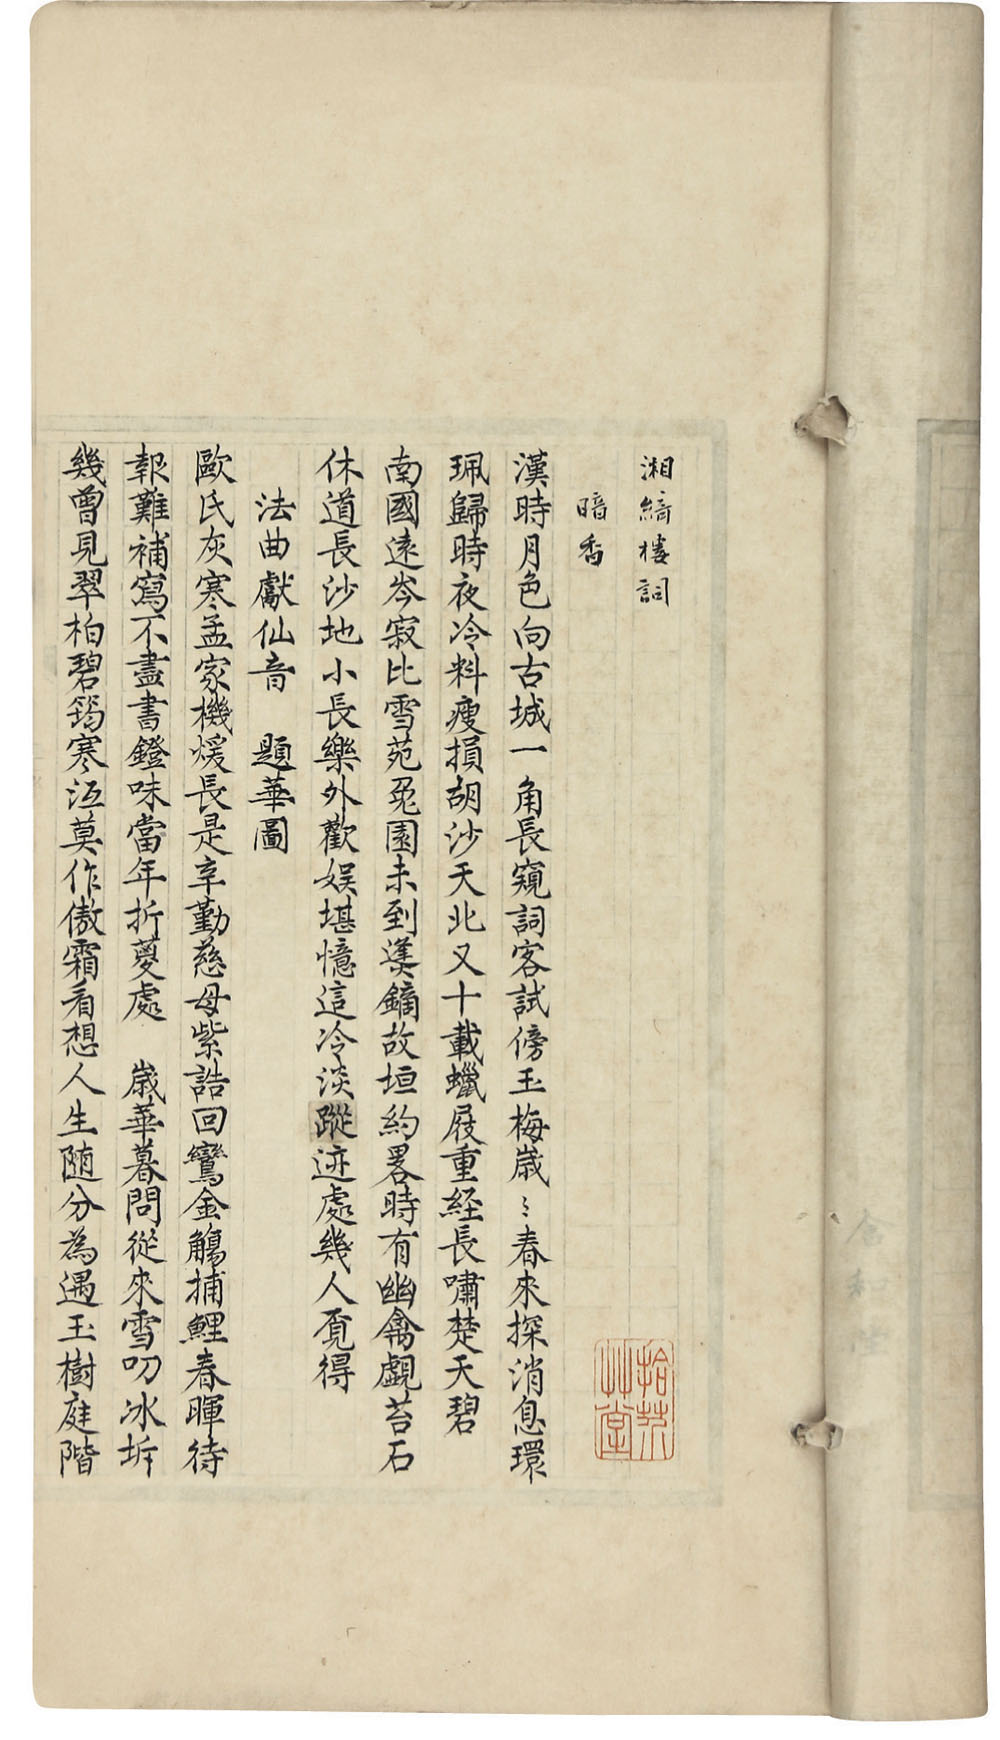 湘綺樓詞
暗香
漢時月色向古城一角長窺詞客試傍玉梅歲〻春來探消息環
珮歸時夜冷料瘦損胡沙天北又十載蠟屐重経長嘯楚天碧
南國遠岑寂比雪苑兔園未到羙鏑故垣約畧時有幽禽覷苔石
休道長沙地小長樂外歡娱堪憶這冷淡蹤迹處幾人覔得
法曲獻仙音　題華圖
歐氏灰寒孟家機煖長是辛勤慈母紫誥回鸞金觴捕鯉春暉待
報難補寫不盡書鐙味當年折葼處　歲華暮問從來雪叨冰坼
幾曾見翠柏碧筠寒沍莫作傲霜看想人生随分為遇玉樹庭階
拾芥
山堂